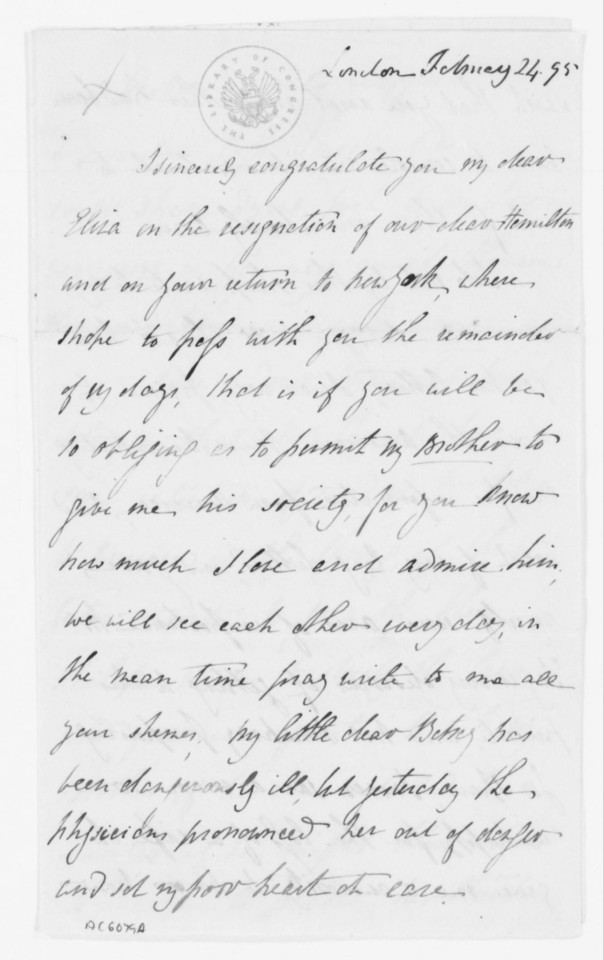 THE LIBRARY OF CONGRESS
London February 24. 95
I sincerely congratulate you my dear
Eliza on the resignation of our dear Hamilton
and on your return to new york, where
I hope to pass with you the remainder
of my days, that is if you will be
so obliging as to permit my Brother to
give me his society, for you know
how much I love and admire him,
we will see each other every day, in
the mean time pray write to me all
your shemes, my little dear Betsey has
been dangerously ill, but yesterday the
physicians pronounced her out of danger
and set my poor heart at ease.